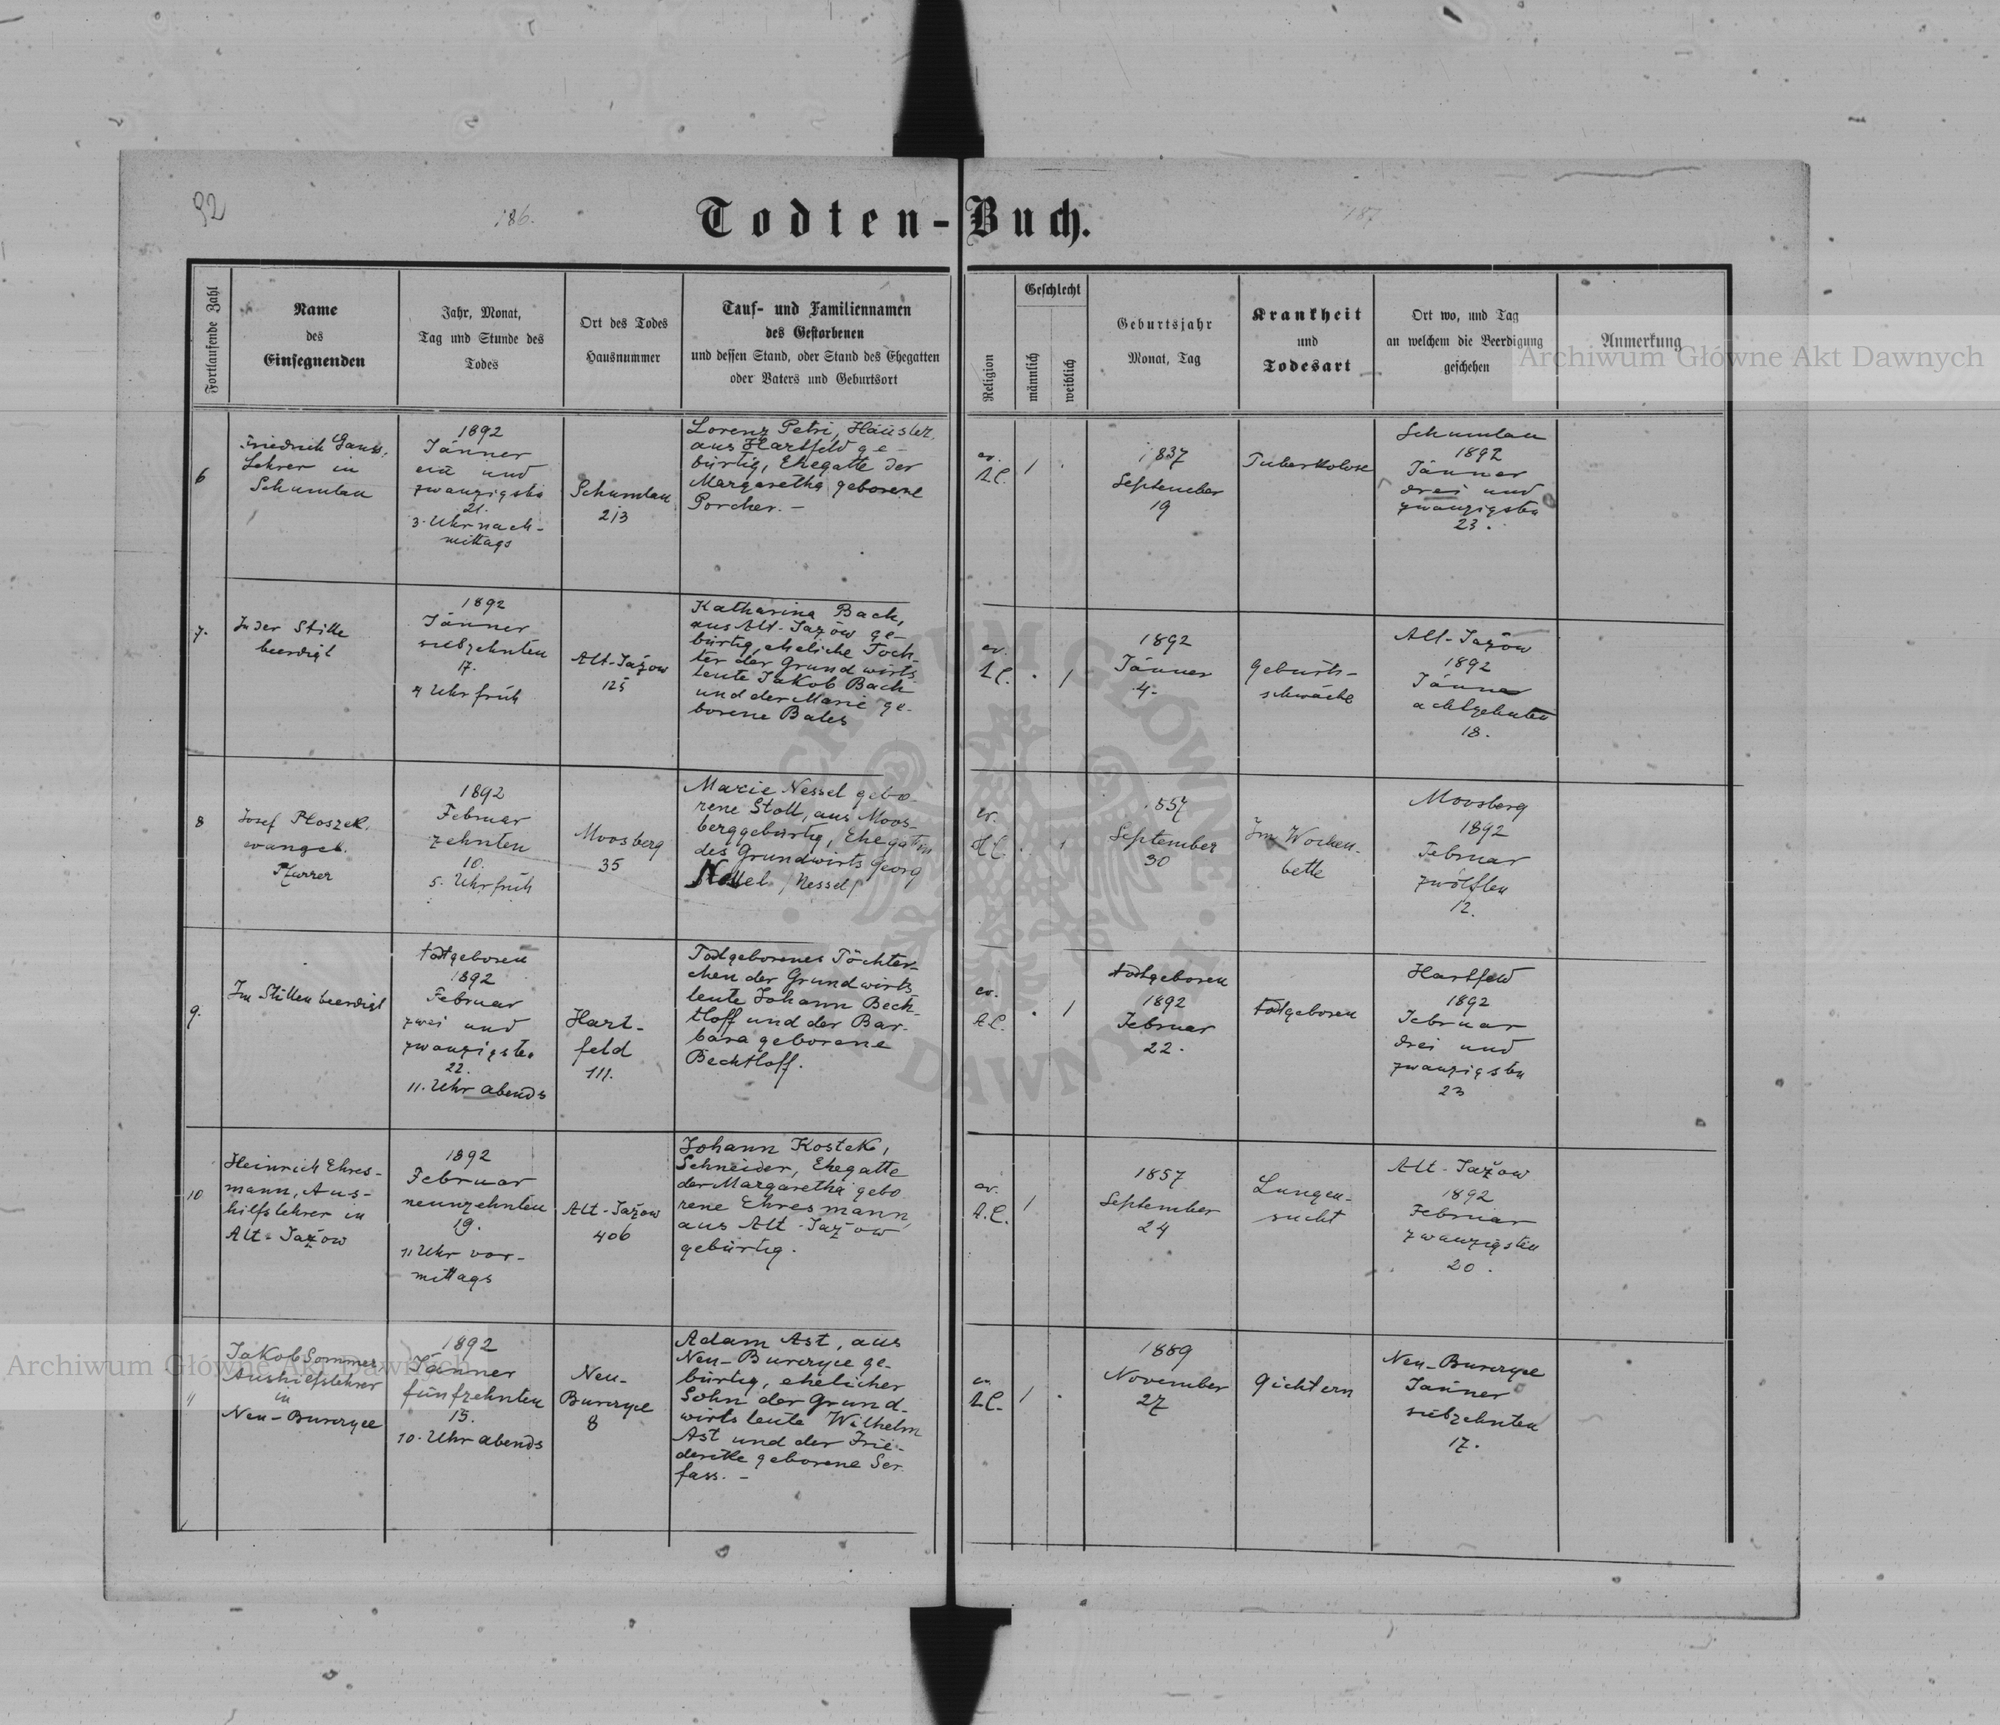 92
186.
187
Todten-Buch.
Fortlaufende Zahl
Name
des
Einsegnenden
Jahr, Monat,
Tag und Stunde des
Todes
Ort des Todes
Hausnummer
Tauf- und Familiennamen
des Gestorbenen
und dessen Stand, oder Stand des Ehegatten
oder Vaters und Geburtsort
Religion
Geschlecht
männlich
weiblich
Geburtsjahr
Monat, Tag
Krankheit
und
Todesart
Ort wo, und Tag
an welchem die Beerdigung
geschehen
Anmerkung
Archiwum Główne Akt Dawnych
6
Friedrich Gauss,
Lehrer in
Schumlau
1892
Jänner
ein und
zwanzigsten
21.
3. Uhr nach-
mittags
Schumlau
213
Lorenz Petri, Häusler,
aus Hartfeld ge-
bürtig, Ehegatte der
Margaretha geborene
Porcher. -
ev.
A.C.
1
.
1837
September
19
Tuberkolose
Schumlau
1892
Jänner
drei und
zwanzigsten
23.
7.
In der Stille
beerdigt
1892
Jänner
siebzehnten
17.
4 Uhr früh
Alt-Jażow
125
Katharina Bach,
aus Alt-Jażów ge-
bürtig, eheliche Toch-
ter der Grundwirts
leute Jakob Bach
und der Marie ge-
borene Bales
ev.
A.C.
.
1
1892
Jänner
4.
Geburts-
schwäche
Alt-Jażow
1892
Jänner
achtzehnten
18.
8
Josef Ploszek,
evangel.
Pfarrer
1892
Februar
zehnten
10.
5. Uhr früh
Moosberg
35
Marie Nessel gebo-
rene Stoll, aus Moos-
berg gebürtig, Ehegattin
des Grundwirts Georg
/Nessel/
ev.
H.C.
.
1
1857
September
30
Im Wochen-
bette
Moosberg
1892
Februar
zwölften
12.
9.
Im Stillen beerdigt
todtgeboren
1892
Februar
zwei und
zwanzigsten
22.
11. Uhr abends
Hart-
feld
111.
Todtgeborenes Töchter-
chen der Grundwirts
leute Johann Bech-
tloff und der Bar-
bara geborene
Bechtloff.
ev.
A.C.
.
1
todtgeboren
1892
Februar
22.
todtgeboren
Hartfeld
1892
Februar
drei und
zwanzigsten
23
10
Heinrich Ehres-
mann, Aus-
hilfslehrer in
Alt-Jażow
1892
Februar
neunzehnten
19.
11 Uhr vor-
mittags
Alt-Jażow
406
Johann Kostek,
Schneider, Ehegatte
der Margaretha gebo
rene Ehresmann,
aus Alt-Jażow
gebürtig.
ev.
A.C.
1
1857
September
24
Lungen-
sucht
Alt-Jażow
1892
Februar
zwanzigsten
20.
11
Jakob Sommer,
Aushilfslehrer
in
Neu-Burczyce
1892
Jänner
fünfzehnten
15.
10. Uhr abends
Neu-
Burczyce
8
Adam Ast, aus
Neu-Burczyce ge-
bürtig, ehelicher
Sohn der Grund-
wirtsleute Wilhelm
Ast und der Frie-
derike geborene Ser-
fass. -
ev.
A.C.
1
.
1889
November
27
Gichtern
Neu-Burczyce
Jänner
siebzehnten
17.
Archiwum Główne Akt Dawnych
ARCHIWUM GŁÓWNE AKT DAWNYCH